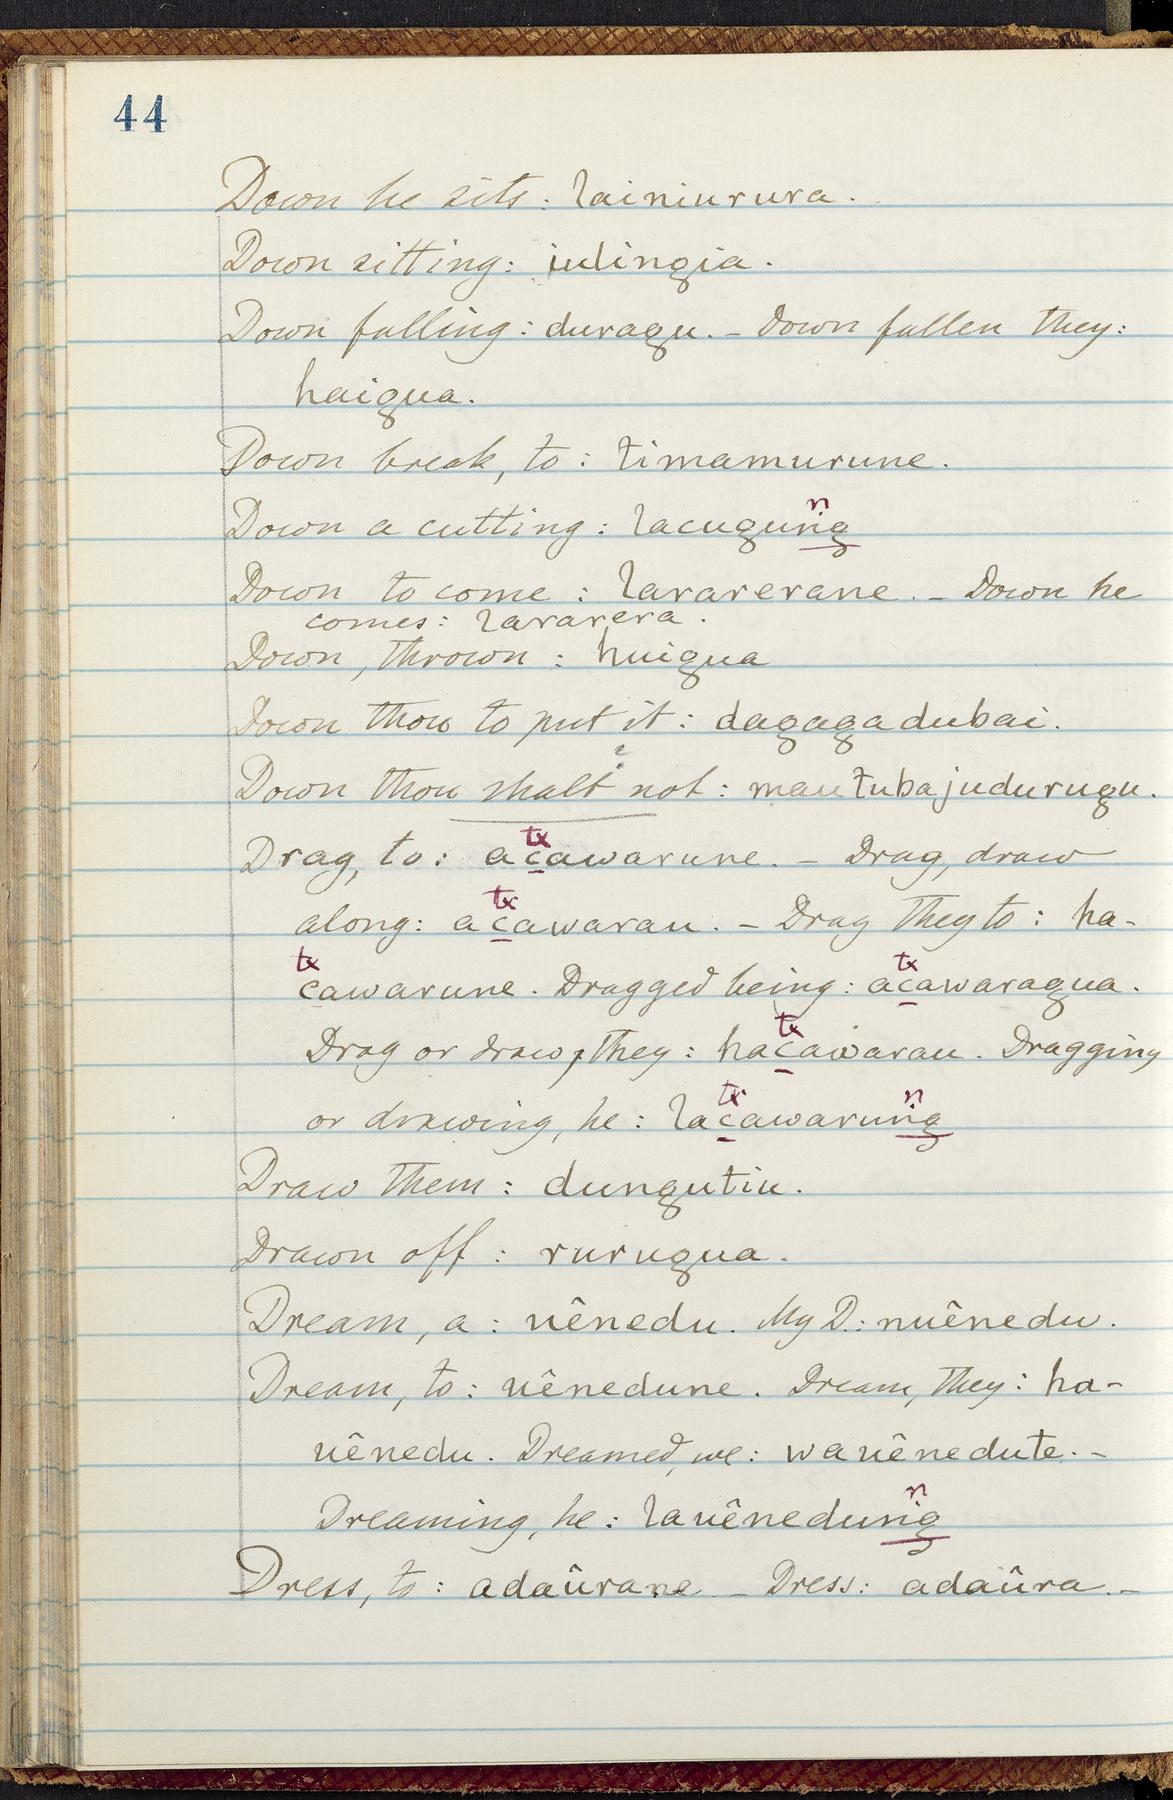 44
Down he sits: lainiurura.
Down sitting: iulingia.
Down falling: duragu. – Down fallen they:
haigua.
Down break, to: timamurune.
n
Down a cutting: lacugung
Down to come: lararerane. – Down he
comes: lararera.
Down, thrown: huigua
Down thou to put it: dagagadubai.
Down thou shalt not: mautubajudurugu.
tx
Drag, to: acawarune. – Drag, draw
tx
along: acawarau. – Drag they to: ha-
tx tx
cawarune. Dragged being: acawaragua.
tx
Drag or draw, they: hacawarau. Dragging
tx n
or drawing, he: lacawarung
Draw them: dungutiu.
Drawn off: rurugua.
Dream, a: uênedu. My D.: nuênedu.
Dream, to: uênedune. Dream, they: ha-
uênedu. Dreamed, we: wauênedute. –
n
Dreaming, he: lauênedung
Dress, to: adaûrane – Dress: adaûra. –